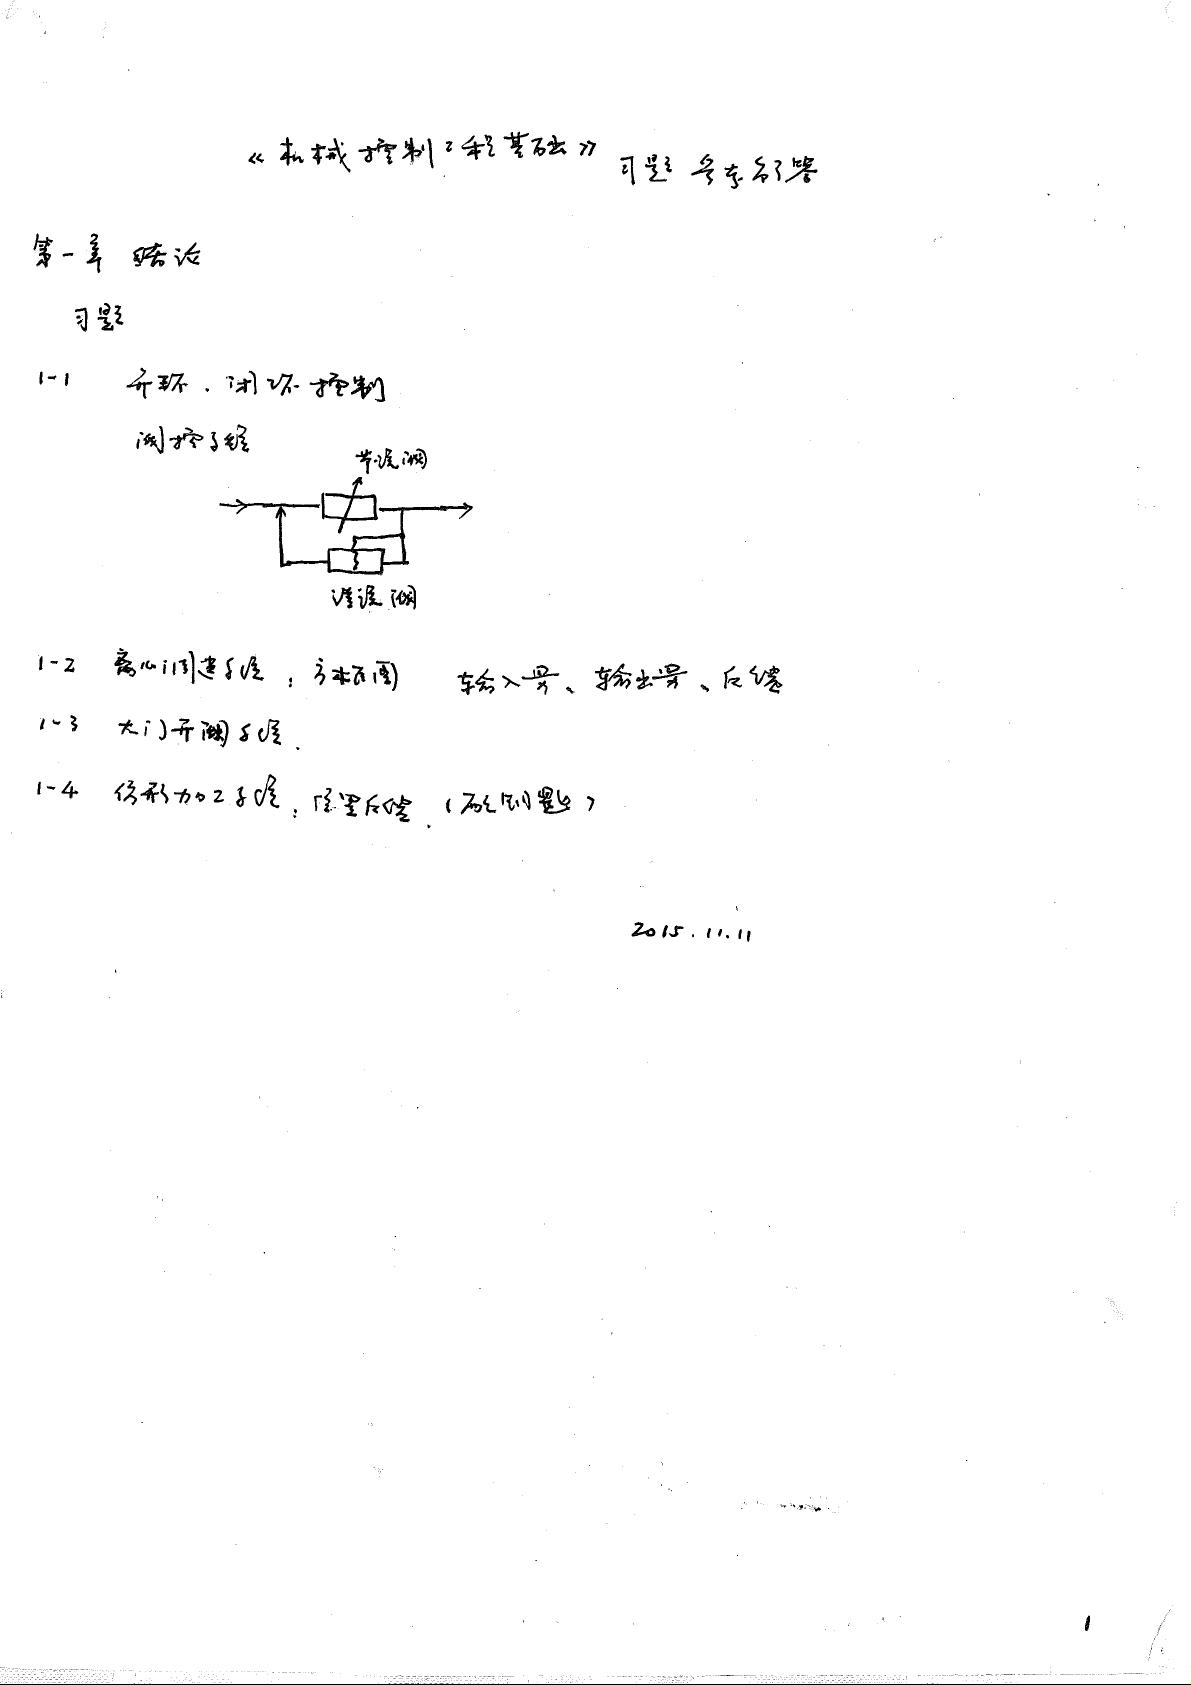 《机械控制工程基础》习题参考解答
第一章 绪论
习题
1-1 开环、闭环控制
阀控系统
节流阀
溢流阀
1-2 离心调速系统；方框图 输入量、输出量、反馈
1-3 大门开闭系统.
1-4 仿形加工系统；位置反馈.（配钥匙）
2015.11.11
1